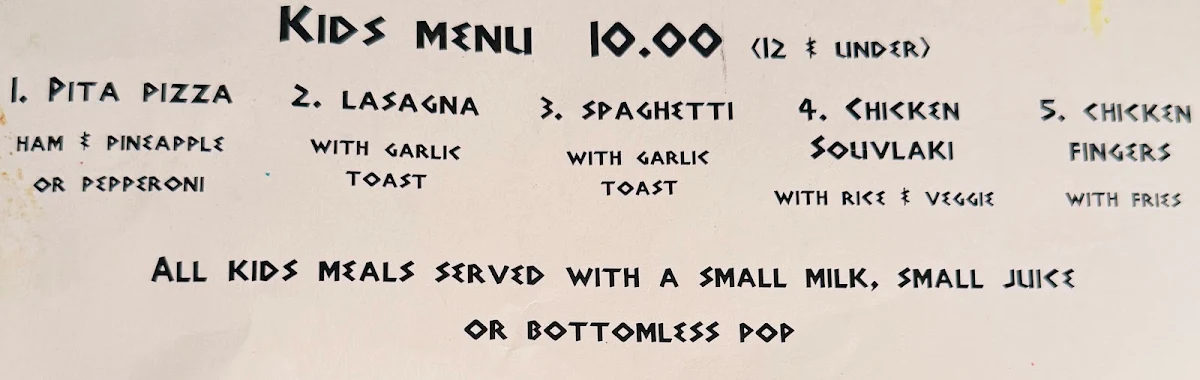 KIDS MENU 10.00 (12 & UNDER)
1. PITA PIZZA
HAM & PINEAPPLE
OR PEPPERONI
2. LASAGNA
WITH GARLIC
TOAST
3. SPAGHETTI
WITH GARLIC
TOAST
4. CHICKEN
SOUVLAKI
WITH RICE & VEGGIE
5. CHICKEN
FINGERS
WITH FRIES
ALL KIDS MEALS SERVED WITH A SMALL MILK, SMALL JUICE
OR BOTTOMLESS POP